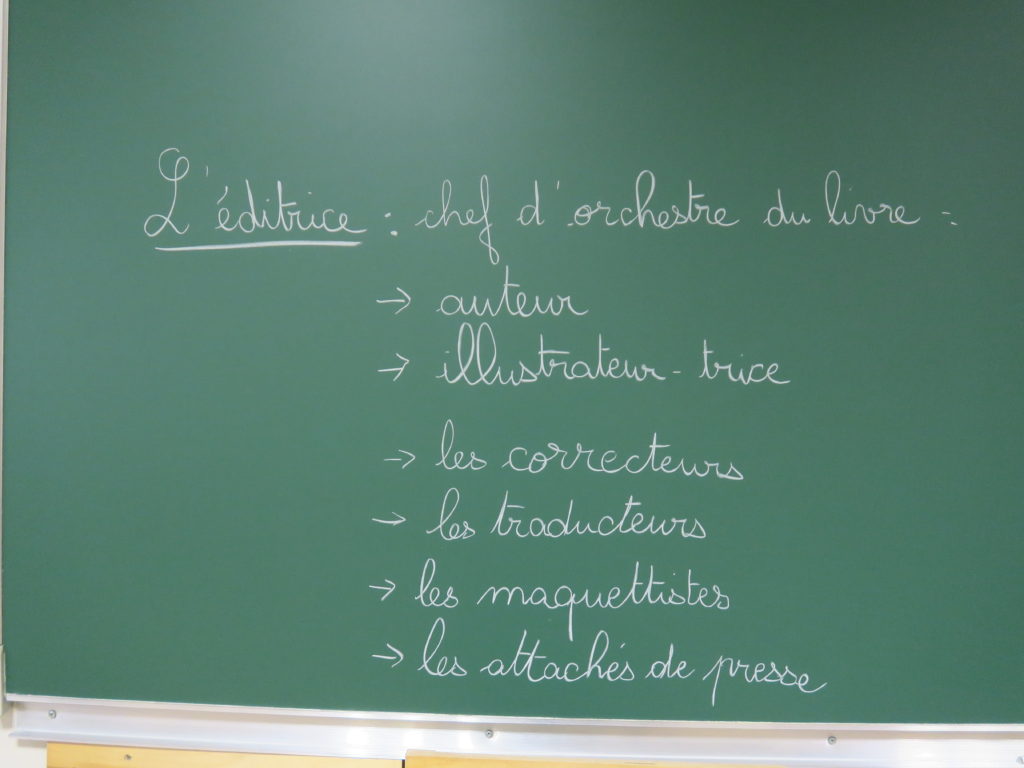 L'éditrice : chef d'orchestre du livre =
→ auteur
→ illustrateur-trice
→ les correcteurs
→ les traducteurs
→ les maquettistes
→ les attachés de presse